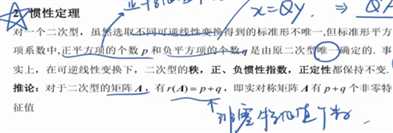 x=Qy. ⇒
2. 惯性定理
对一个二次型，虽然选取不同可逆线性变换得到的标准形不唯一，但标准形平方
项系数中，正平方项的个数 p 和负平方项的个数 q 是由原二次型唯一确定的．事
实上，在可逆线性变换下，二次型的秩，正、负惯性指数，正定性都保持不变．
推论：对于二次型的矩阵 A，有 r(A)=p+q，即实对称矩阵 A 有 p+q 个非零特
征值
非零特征值个数